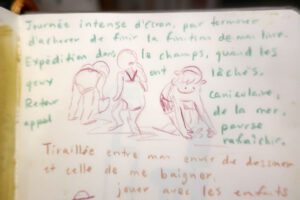 Journée intense d'écran, pour terminer
d'achever de finir la finition de mon livre.
Expédition dans le champs, quand les
yeux ont lâchés.
Retour caniculaire,
appel de la mer,
pour se
rafraîchir.
Tiraillée entre mon envie de dessiner
et celle de me baigner.
jouer avec les enfants